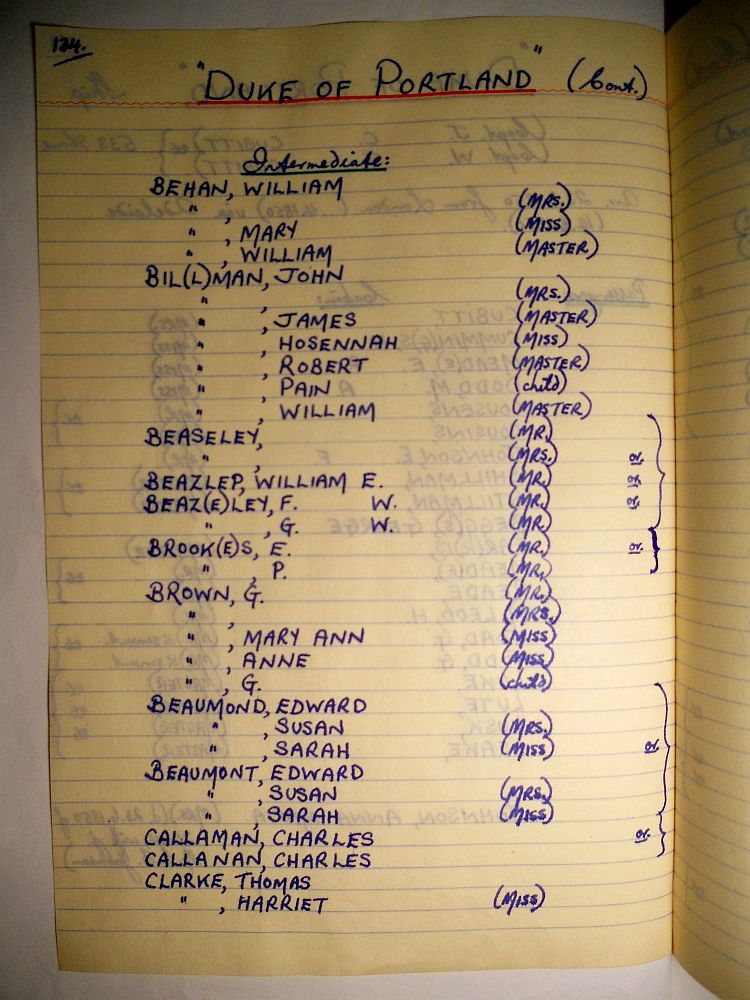 134.
"DUKE OF PORTLAND" (Cont.)
Intermediate:
BEHAN, WILLIAM
" , (MRS.)
" , MARY (MISS)
" , WILLIAM (MASTER)
BIL(L)MAN, JOHN
" , (MRS.)
" , JAMES (MASTER)
" , HOSENNAH (MISS)
" , ROBERT (MASTER)
" , PAIN (child)
" , WILLIAM (MASTER)
BEASELEY, (MR.)
" , (MRS.) or.
BEAZLEP, WILLIAM E. (MR.) or.
BEAZ(E)LEY, F. W. (MR.) or.
" , G. W. (MR.)
BROOK(E)S, E. (MR.) or.
" , P. (MR.)
BROWN, G. (MR.)
" , (MRS.)
" , MARY ANN (MISS)
" , ANNE (MISS)
" , G. (child)
BEAUMOND, EDWARD
" , SUSAN (MRS.)
" , SARAH (MISS) or.
BEAUMONT, EDWARD
" , SUSAN (MRS.)
" , SARAH (MISS)
CALLAMAN, CHARLES or.
CALLANAN, CHARLES
CLARKE, THOMAS
" , HARRIET (MISS)